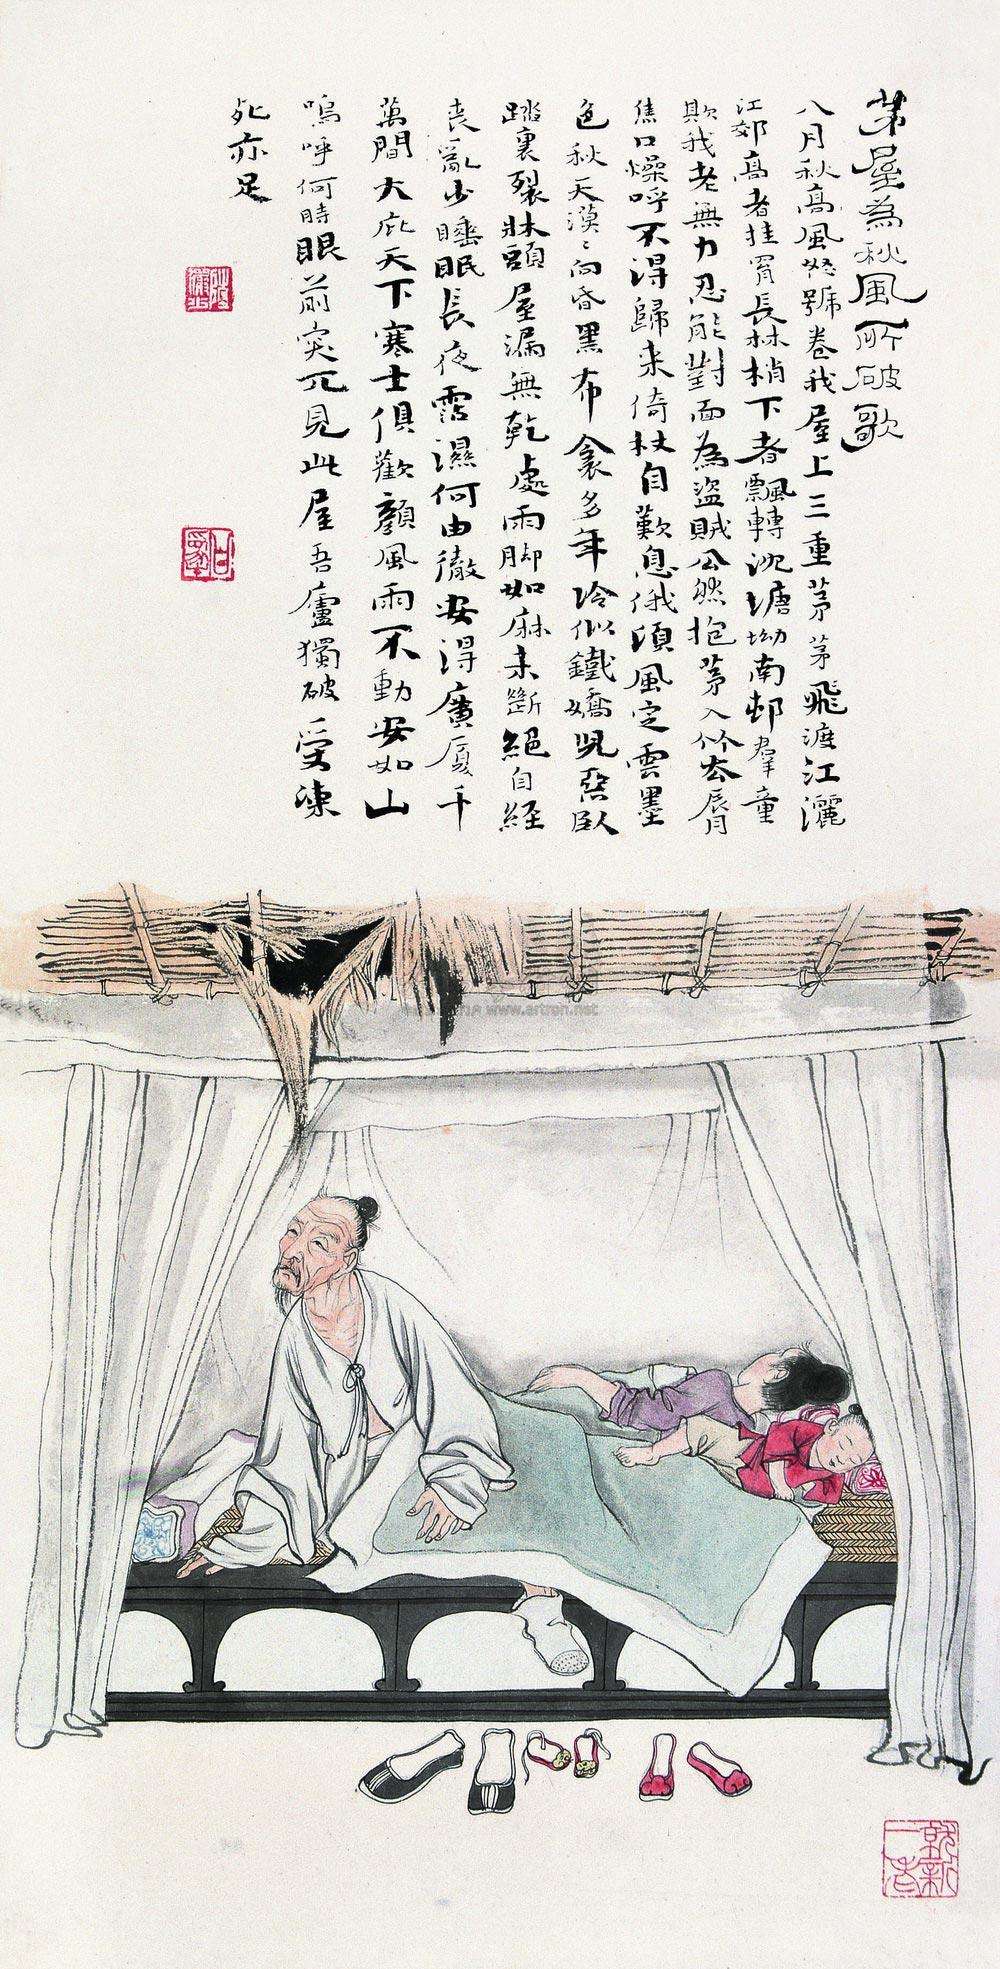 茅屋為秋風所破歌
八月秋高風怒號卷我屋上三重茅茅飛渡江灑
江郊高者挂罥長林梢下者飄轉沈塘坳南邨羣童
欺我老無力忍能對面為盜賊公然抱茅入竹去脣
焦口燥呼不得歸来倚杖自歎息俄頃風定雲墨
色秋天漠〻向昏黑布衾多年冷似鐵嬌児惡臥
踏裏裂牀頭屋漏無乾處雨脚如麻未斷絕自經
丧亂少睡眠長夜霑濕何由徹安得廣厦千
萬間大庇天下寒士俱歡顏風雨不動安如山
嗚呼何時眼前突兀見此屋吾廬獨破受凍
死亦足
www.artron.net